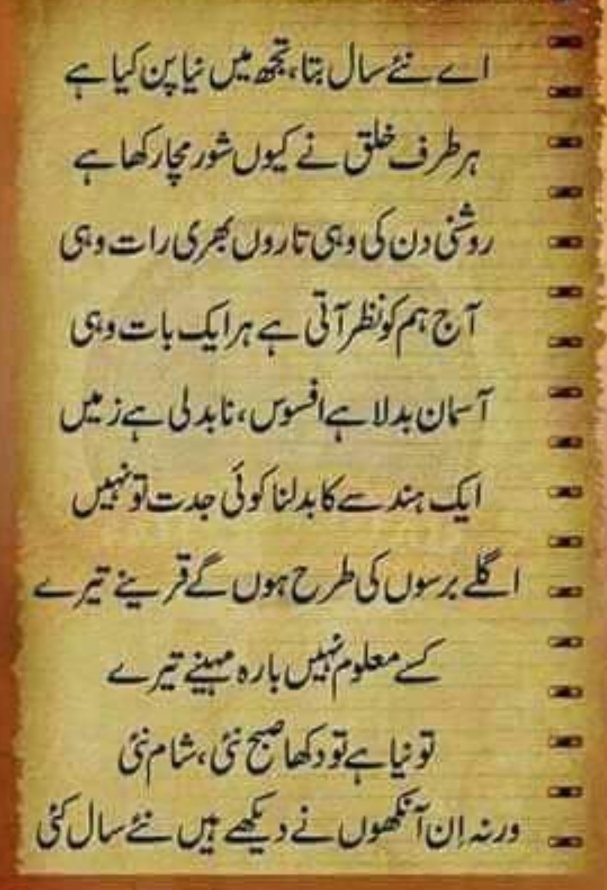 اے نئے سال بتا، تجھ میں نیا پن کیا ہے
ہر طرف خلق نے کیوں شور مچا رکھا ہے
روشنی دن کی وہی تاروں بھری رات وہی
آج ہم کو نظر آتی ہے ہر ایک بات وہی
آسمان بدلا ہے افسوس، نا بدلی ہے زمیں
ایک ہندسے کا بدلنا کوئی جدت تو نہیں
اگلے برسوں کی طرح ہوں گے قرینے تیرے
کسے معلوم نہیں بارہ مہینے تیرے
تو نیا ہے تو دکھا صبح نئی، شام نئی
ورنہ اِن آنکھوں نے دیکھے ہیں نئے سال کئی